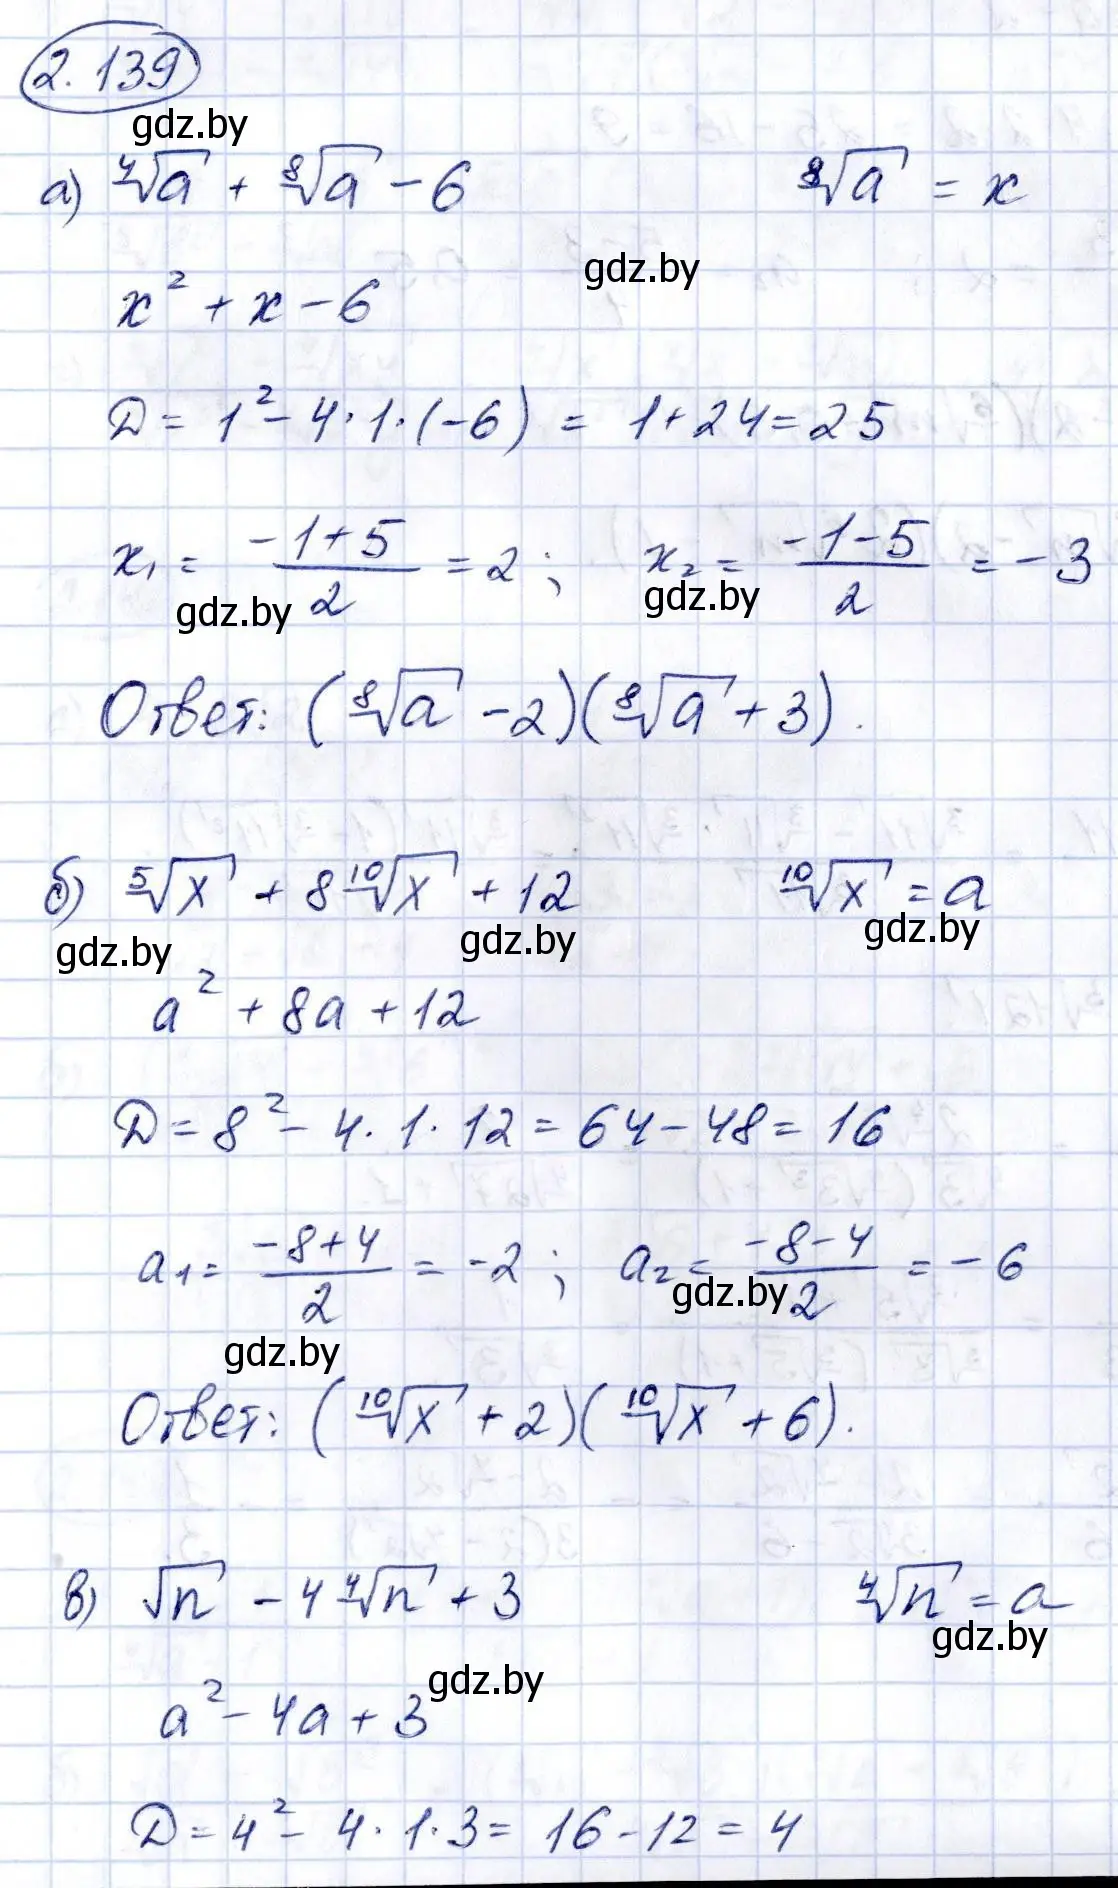 2.139
gdz.by
а) ⁴√a + ⁸√a - 6    ⁸√a = x
gdz.by
x² + x - 6
D = 1² - 4·1·(-6) = 1 + 24 = 25
x₁ = (-1+5)/2 = 2; x₂ = (-1-5)/2 = -3
gdz.by gdz.by
Ответ: (⁸√a - 2)(⁸√a + 3).
б) ⁵√x + 8 ¹⁰√x + 12    ¹⁰√x = a
gdz.by gdz.by gdz.by
a² + 8a + 12
D = 8² - 4·1·12 = 64 - 48 = 16
a₁ = (-8+4)/2 = -2; a₂ = (-8-4)/2 = -6
gdz.by gdz.by
Ответ: (¹⁰√x + 2)(¹⁰√x + 6).
в) √n - 4 ⁴√n + 3    ⁴√n = a
gdz.by
gdz.by
a² - 4a + 3
D = 4² - 4·1·3 = 16 - 12 = 4